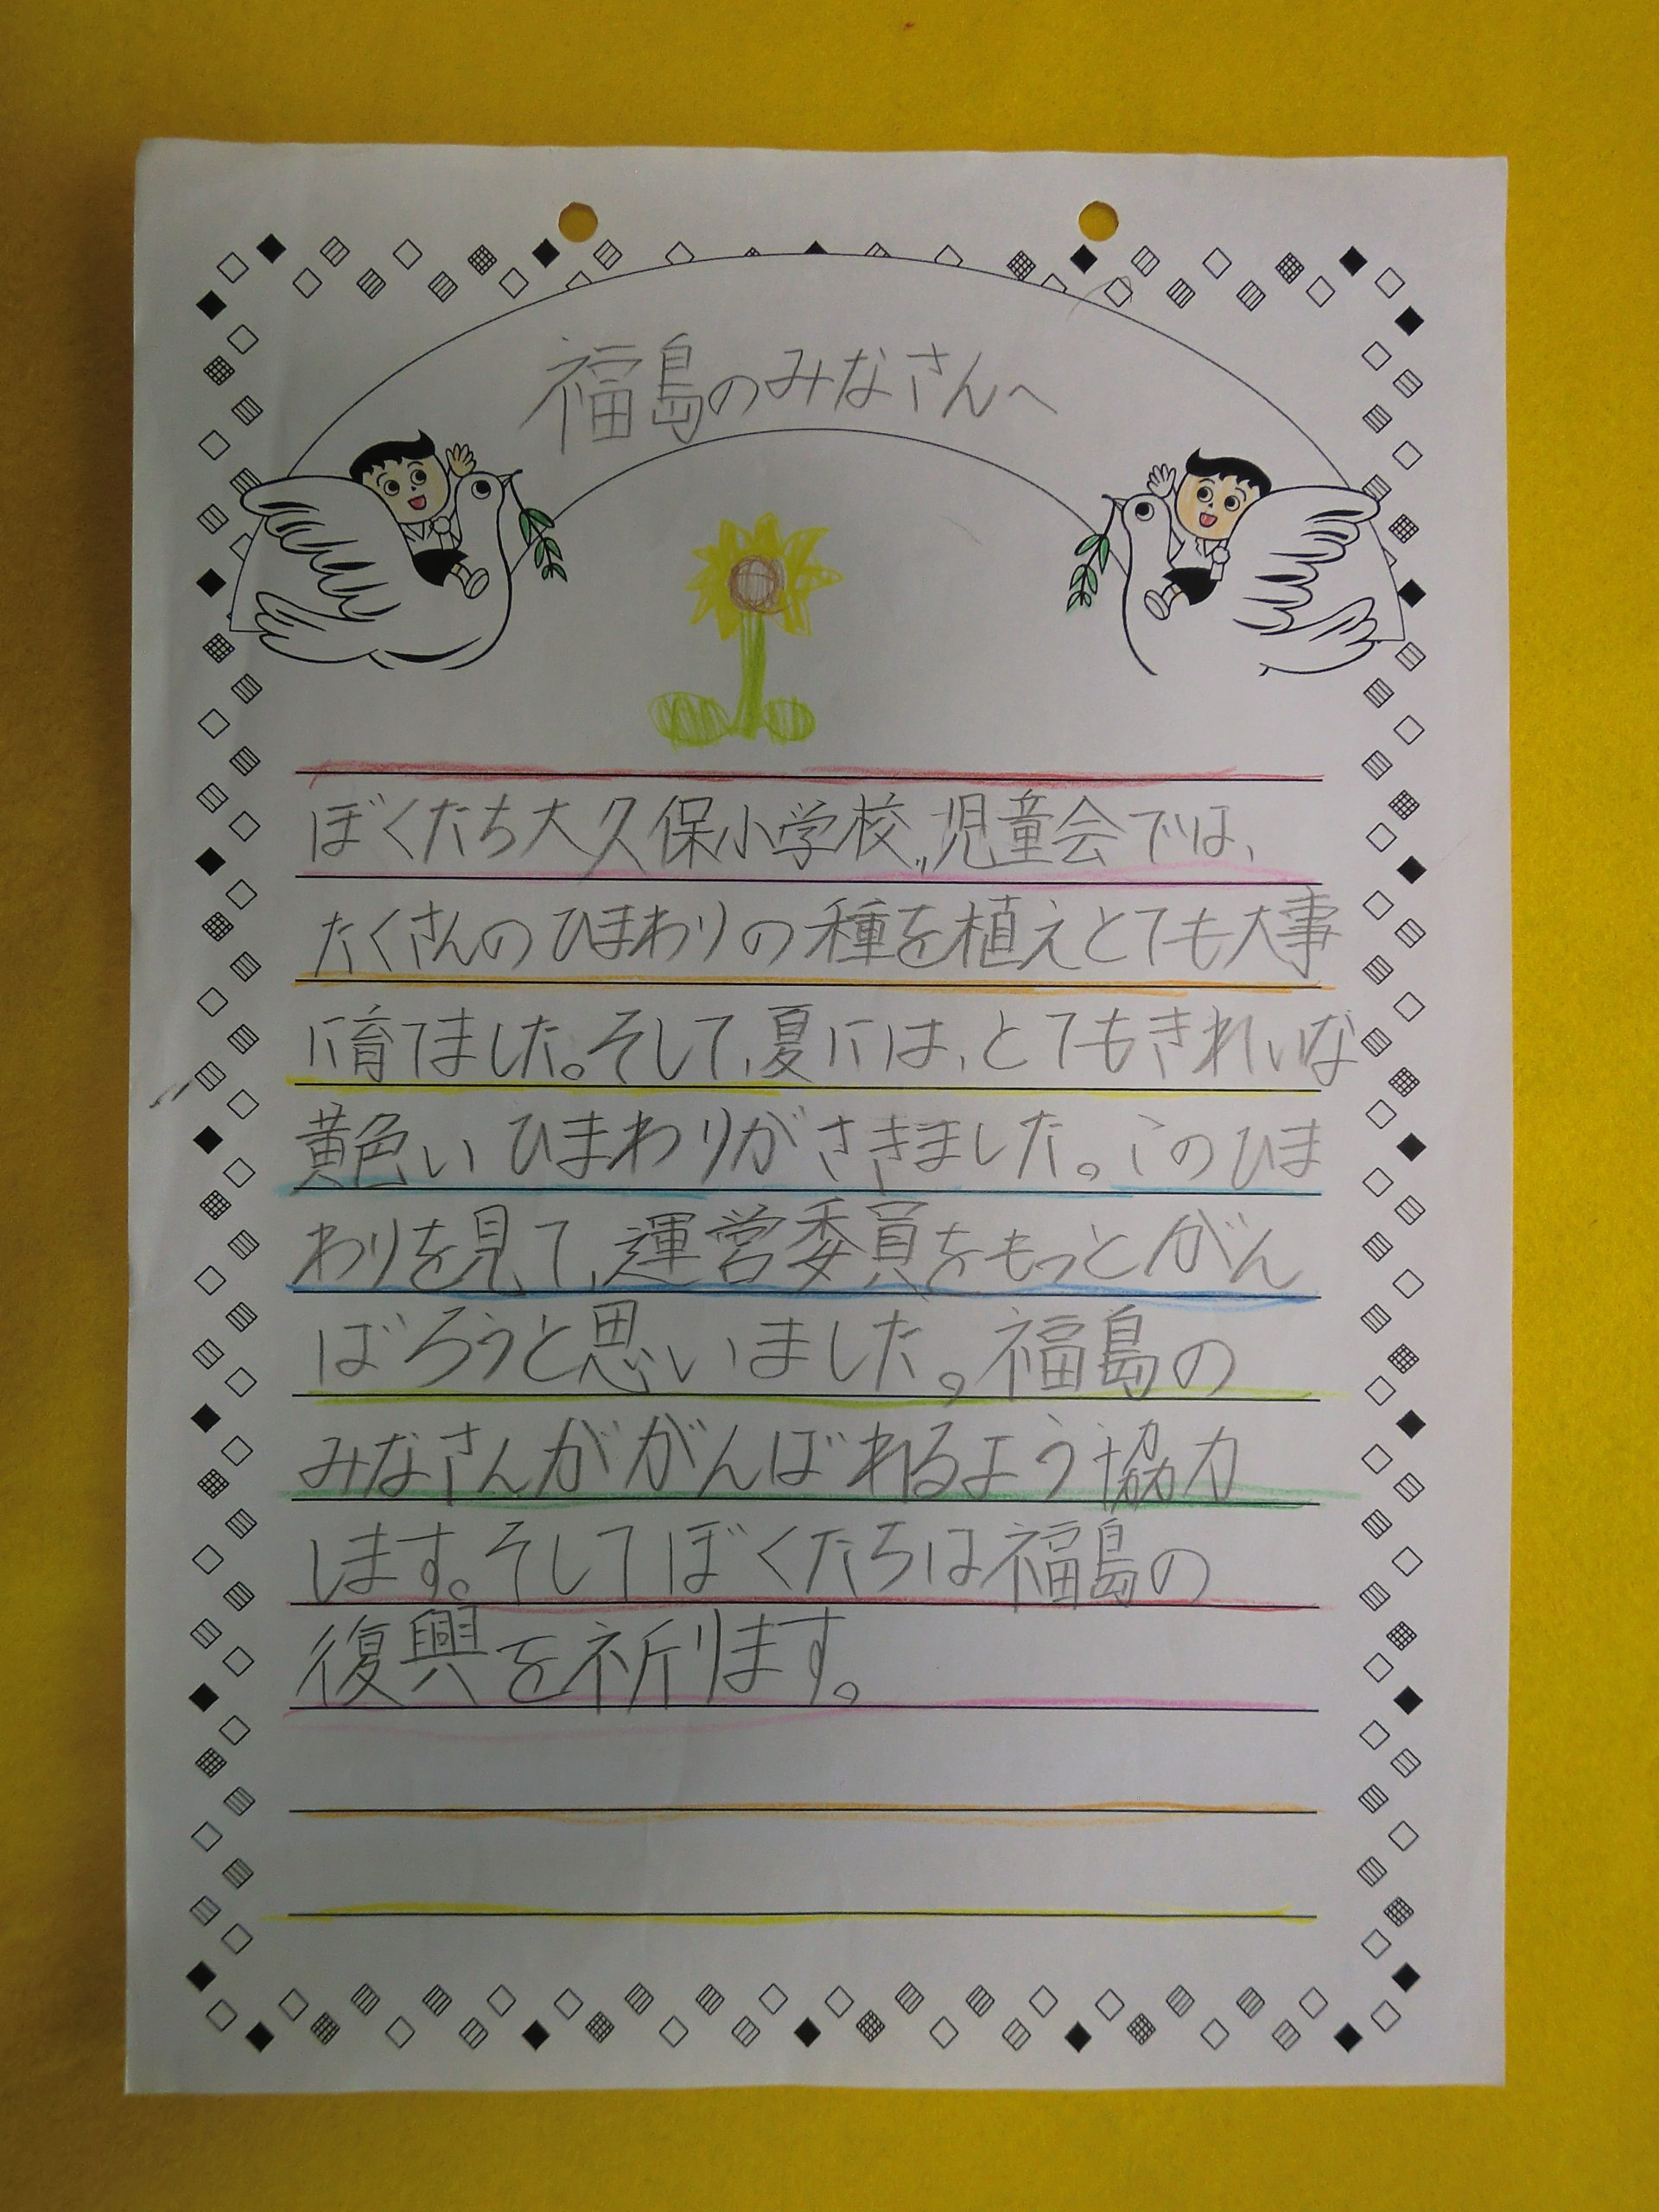 福島のみなさんへ
ぼくたち大久保小学校、児童会では、
たくさんのひまわりの種を植えとても大事
に育てました。そして、夏には、とてもきれいな
黄色いひまわりがさきました。このひま
わりを見て、運営委員をもっとがん
ばろうと思いました。福島の
みなさんががんばれるよう協力
します。そしてぼくたちは福島の
復興を祈ります。